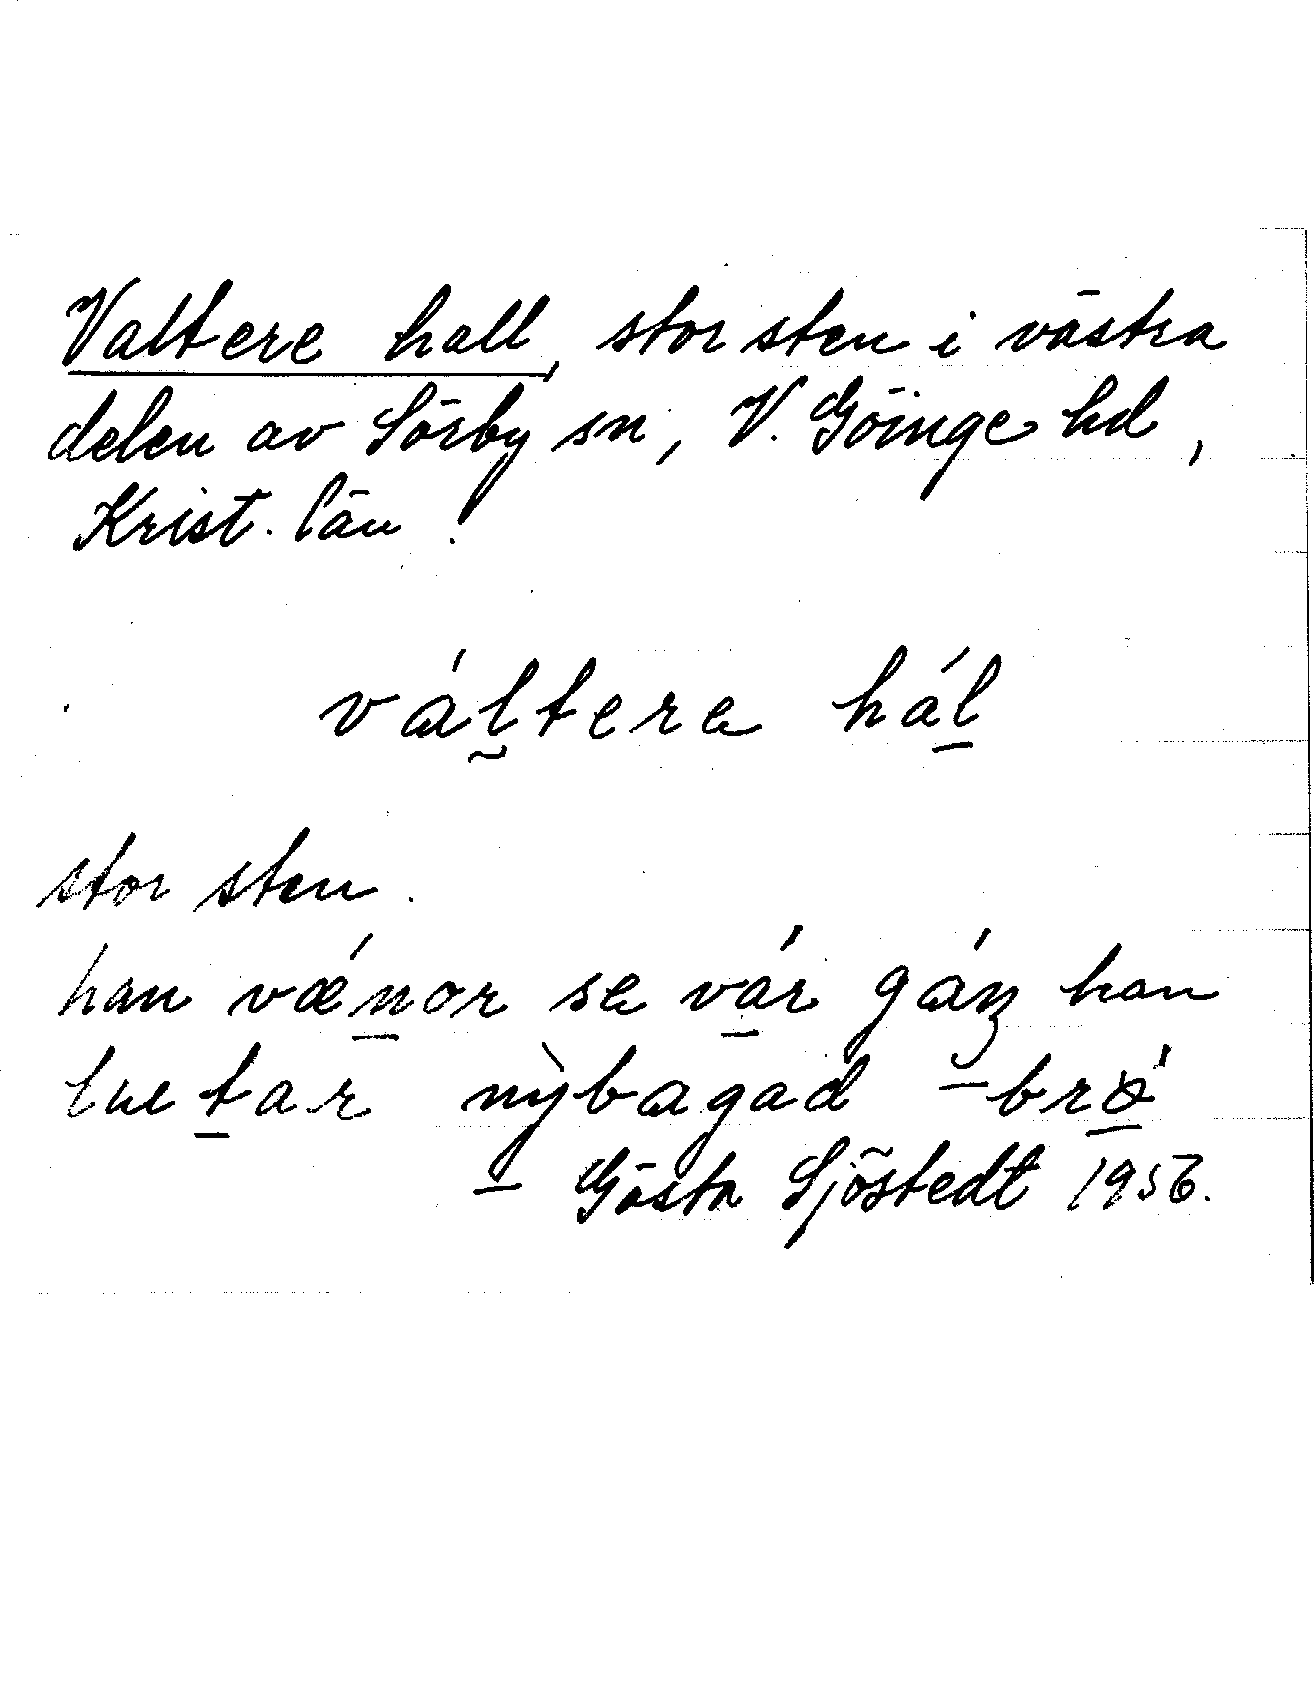 Valtere hall, stor sten i västra
delen av Sörby sn, V. Göinge hd,
Krist. län.
váltere hál
stor sten.
han vǽnor se vár gáŋ han
luetar nỳbagad brǿ
Gösta Sjöstedt 1956.